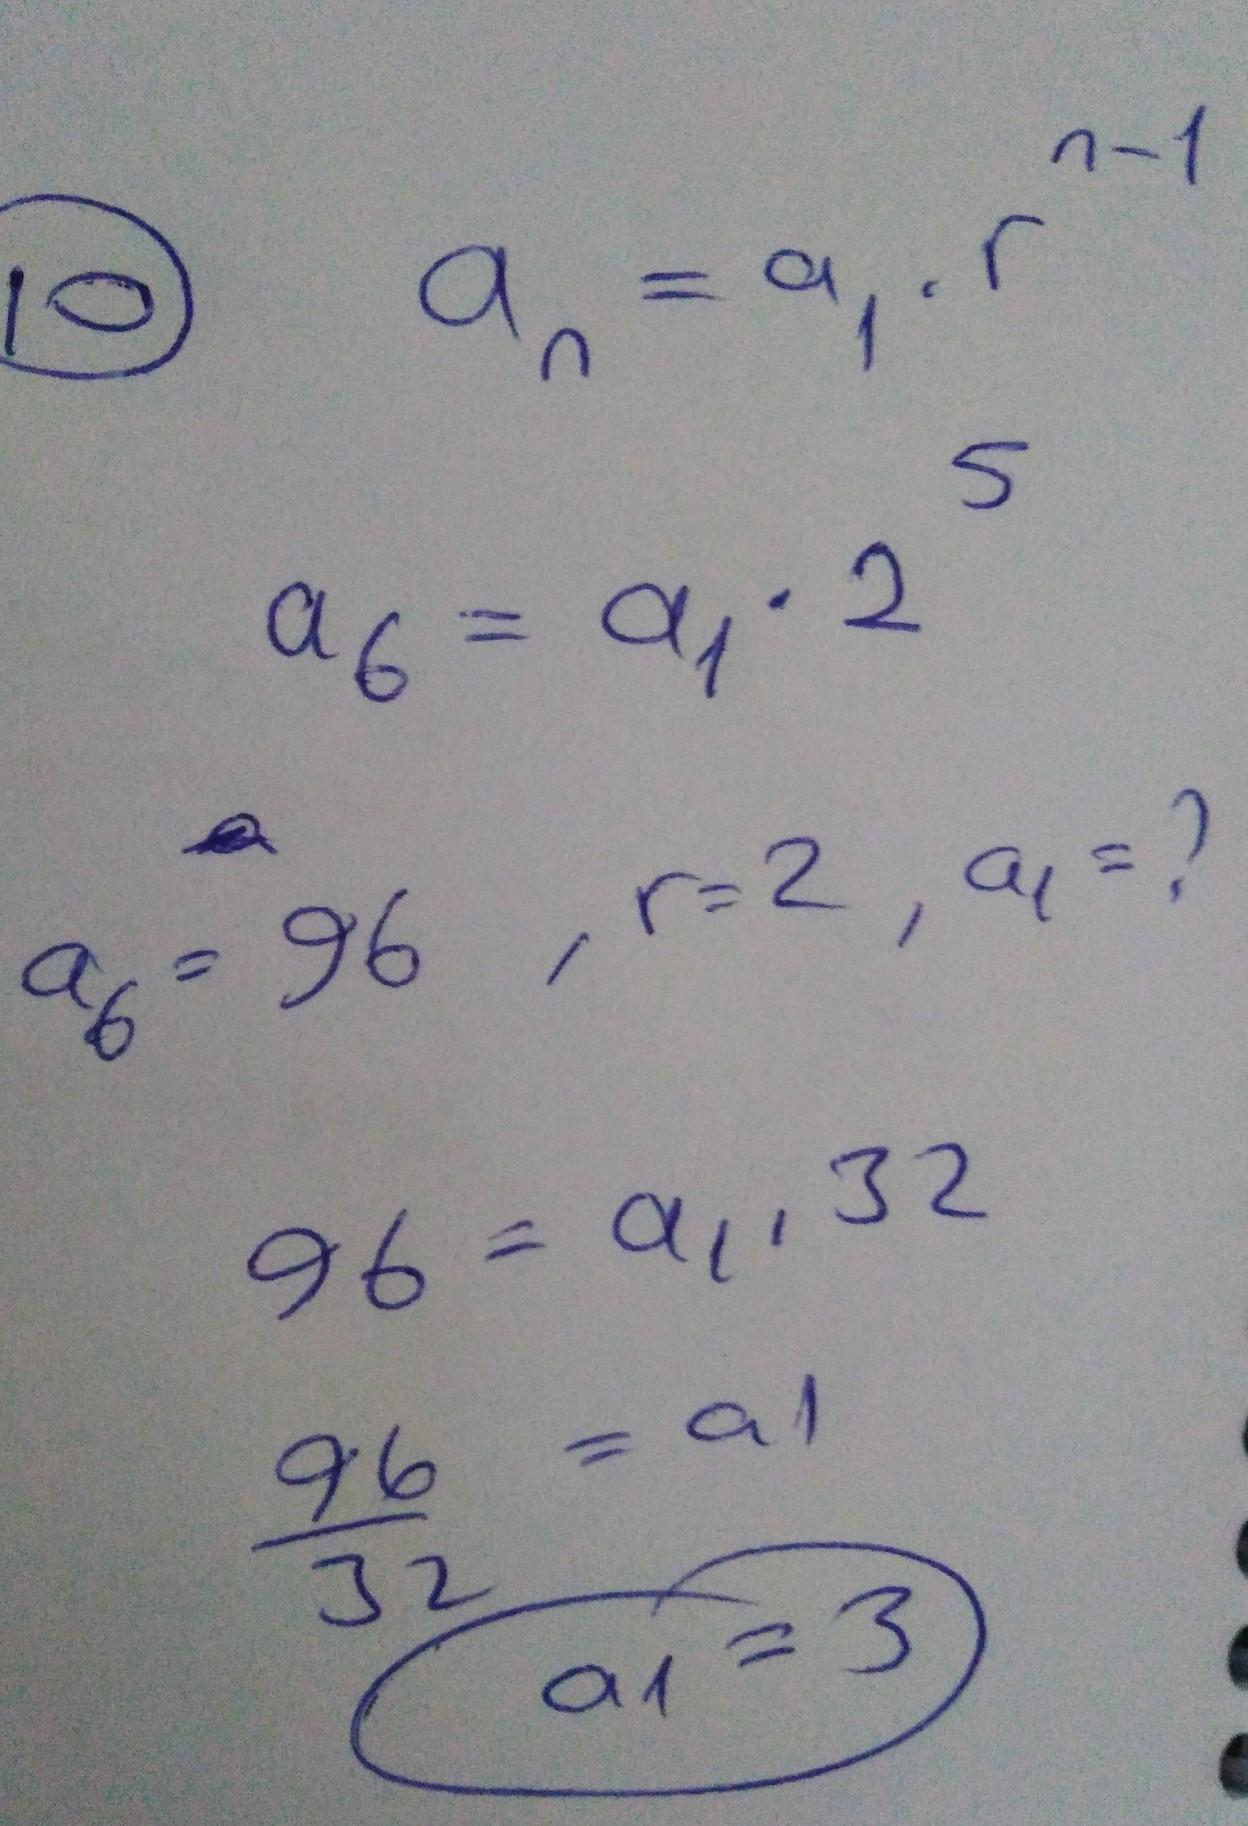 10
aₙ = a₁ · rⁿ⁻¹
a₆ = a₁ · 2⁵
a₆ = 96 , r = 2 , a₁ = ?
96 = a₁ . 32
96/32 = a1
a1 = 3